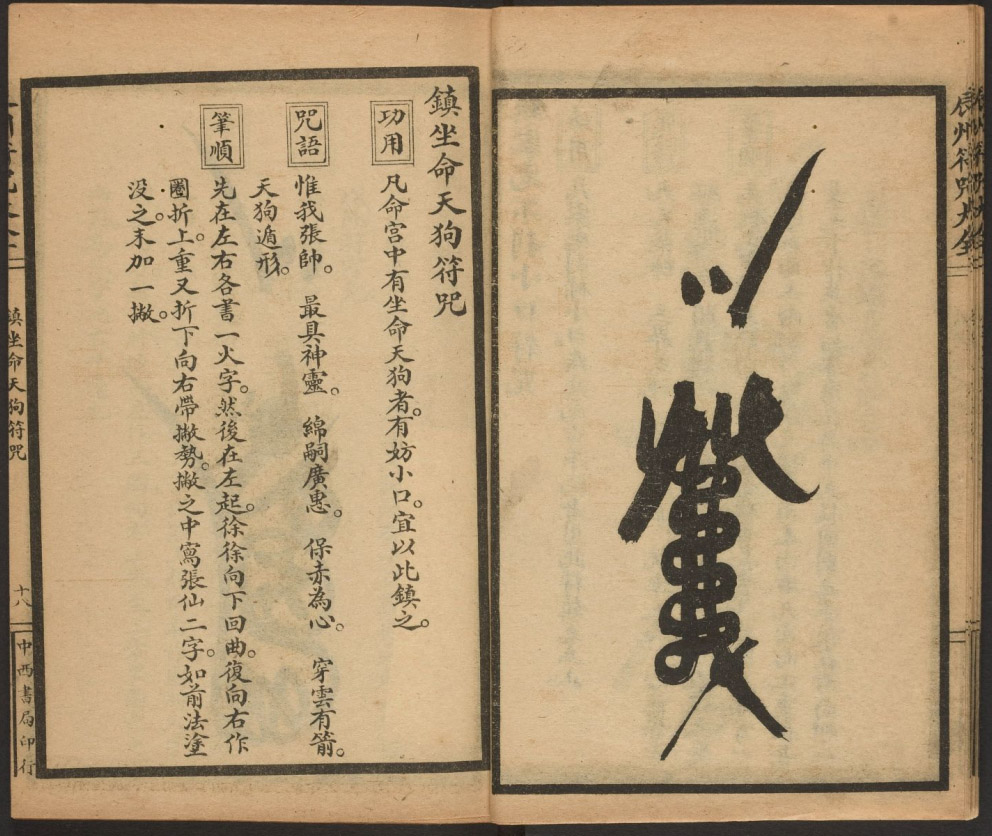 辰州符咒大全
鎮坐命天狗符咒
功用
凡命宮中有坐命天狗者。有妨小口。宜以此鎮之。
咒語
惟我張帥。最具神靈。綿嗣廣惠。保赤為心。穿雲有箭。
天狗遁形。
筆順
先在左右各書一火字。然後在左起。徐徐向下回曲。復向右作
圈折上。重又折下向右帶撇勢。撇之中寫張仙二字。如前法塗
沒之。末加一撇。
鎮坐命天狗符咒
十八
中西書局印行